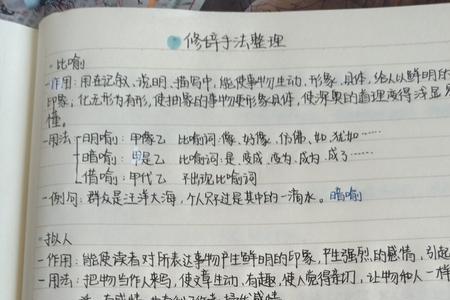 修辞手法整理
·比喻
-作用：用在记叙、说明、描写中，能使事物生动、形象、具体，给人以鲜明的
印象；化无形为有形，使抽象的事物更形象具体，使深奥的道理变得浅显易
懂。
-用法 明喻：甲像乙 比喻词：像、好像、仿佛、如、犹如……
暗喻：甲是乙 比喻词：是、变成、变为、成为、成了……
借喻：甲代乙 不出现比喻词
-例句：群众是汪洋大海，个人只不过是其中的一滴水。暗喻
·拟人
-作用：能使读者对所表达事物产生鲜明的印象，产生强烈的感情，引起
-用法：把物当作人来写，使文章生动、有趣，使人觉得亲切，让物和人一样